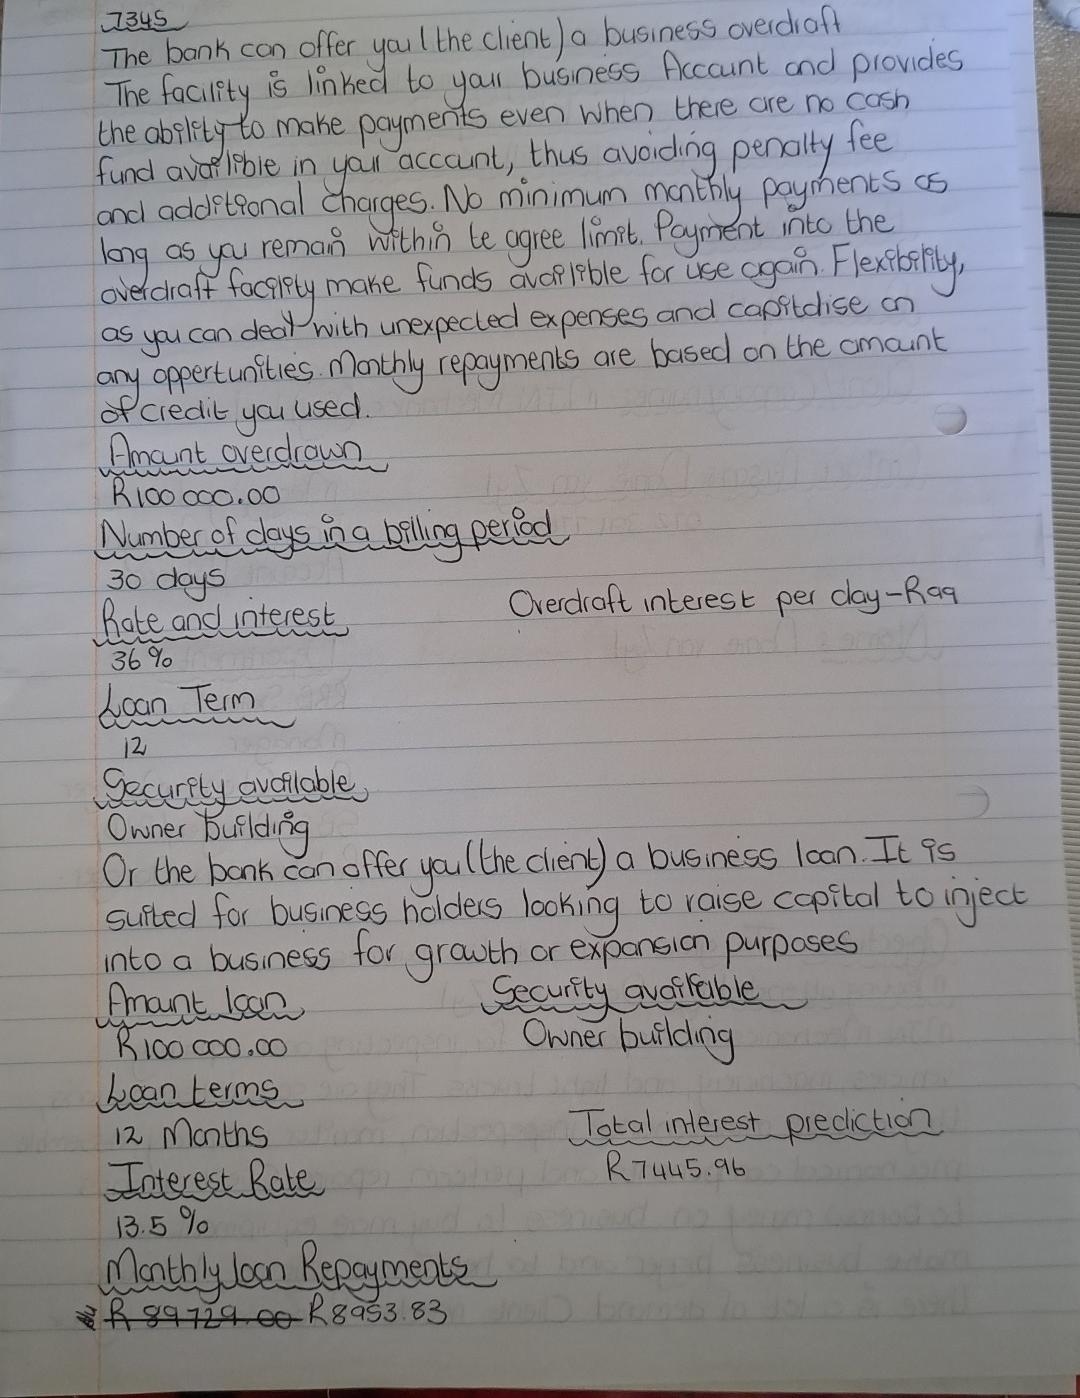 7345
The bank can offer you (the client) a business overdraft
The facility is linked to your business Account and provides
the ability to make payments even when there are no cash
fund availible in your account, thus avoiding penalty fee
and additional charges. No minimum monthly payments as
long as you remain within te agree limit. Payment into the
overdraft facility make funds availible for use again. Flexibility,
as you can deal with unexpected expenses and capitalise on
any oppertunities. Monthly repayments are based on the amount
of credit you used.
Amount overdrawn
R100 000.00
Number of days in a billing period
30 days
Rate and interest
Overdraft interest per day-R99
36%
Loan Term
12
Security available
Owner building
Or the bank can offer you (the client) a business loan. It is
suited for business holders looking to raise capital to inject
into a business for growth or expansion purposes
Amount loan
Security available
R100 000.00
Owner building
Loan terms
12 Months
Total interest prediction
R7445.96
Interest Rate
13.5%
Monthly loan Repayments
R 89729.00 R8953.83